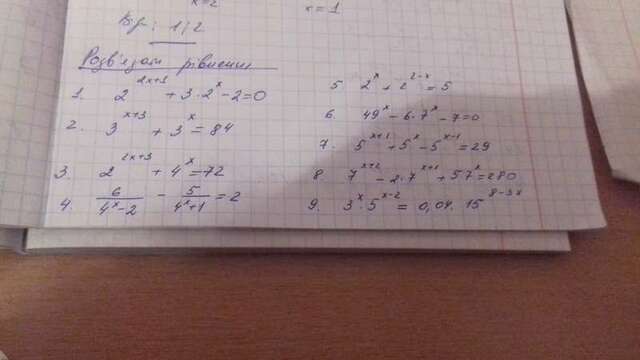 Вр: 1/2
Розв'язати рівнення
1. 2^{2x+5} + 3·2^x - 2 = 0
2. 3^{x+3} + 3^x = 84
3. 2^{2x+3} + 4^x = 72
4. 6/(4^x-2) - 5/(4^x+1) = 2
x = 1
5 2^x + 2^{2-x} = 5
6 49^x - 6·7^x - 7 = 0
7. 5^{x+1} + 5^x - 5^{x-1} = 29
8 7^{x+2} - 2·7^{x+1} + 5·7^x = 280
9. 3^x·5^{x-2} = 0,04·15^{8-3x}